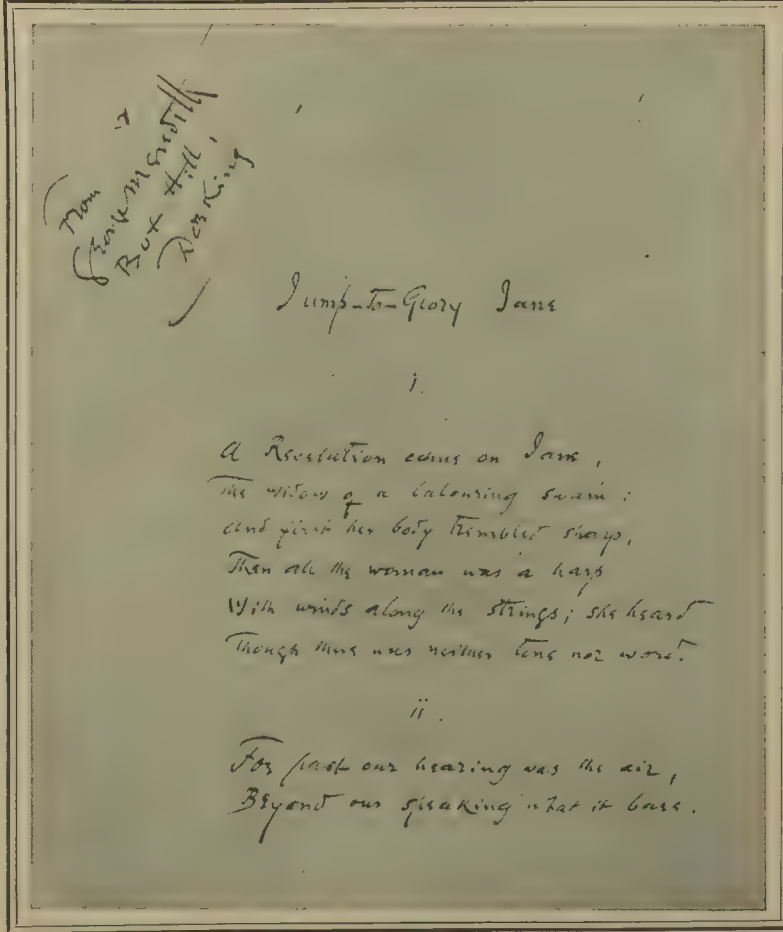 From
George Meredith
Box Hill,
Dorking
Jump-to-Glory Jane
i.
A Revelation came on Jane,
The widow of a labouring swain:
And first her body trembled sharp,
Then all the woman was a harp
With winds along the strings; she heard
Though there was neither tone nor word.
ii.
For past our hearing was the air,
Beyond our speaking what it bare.